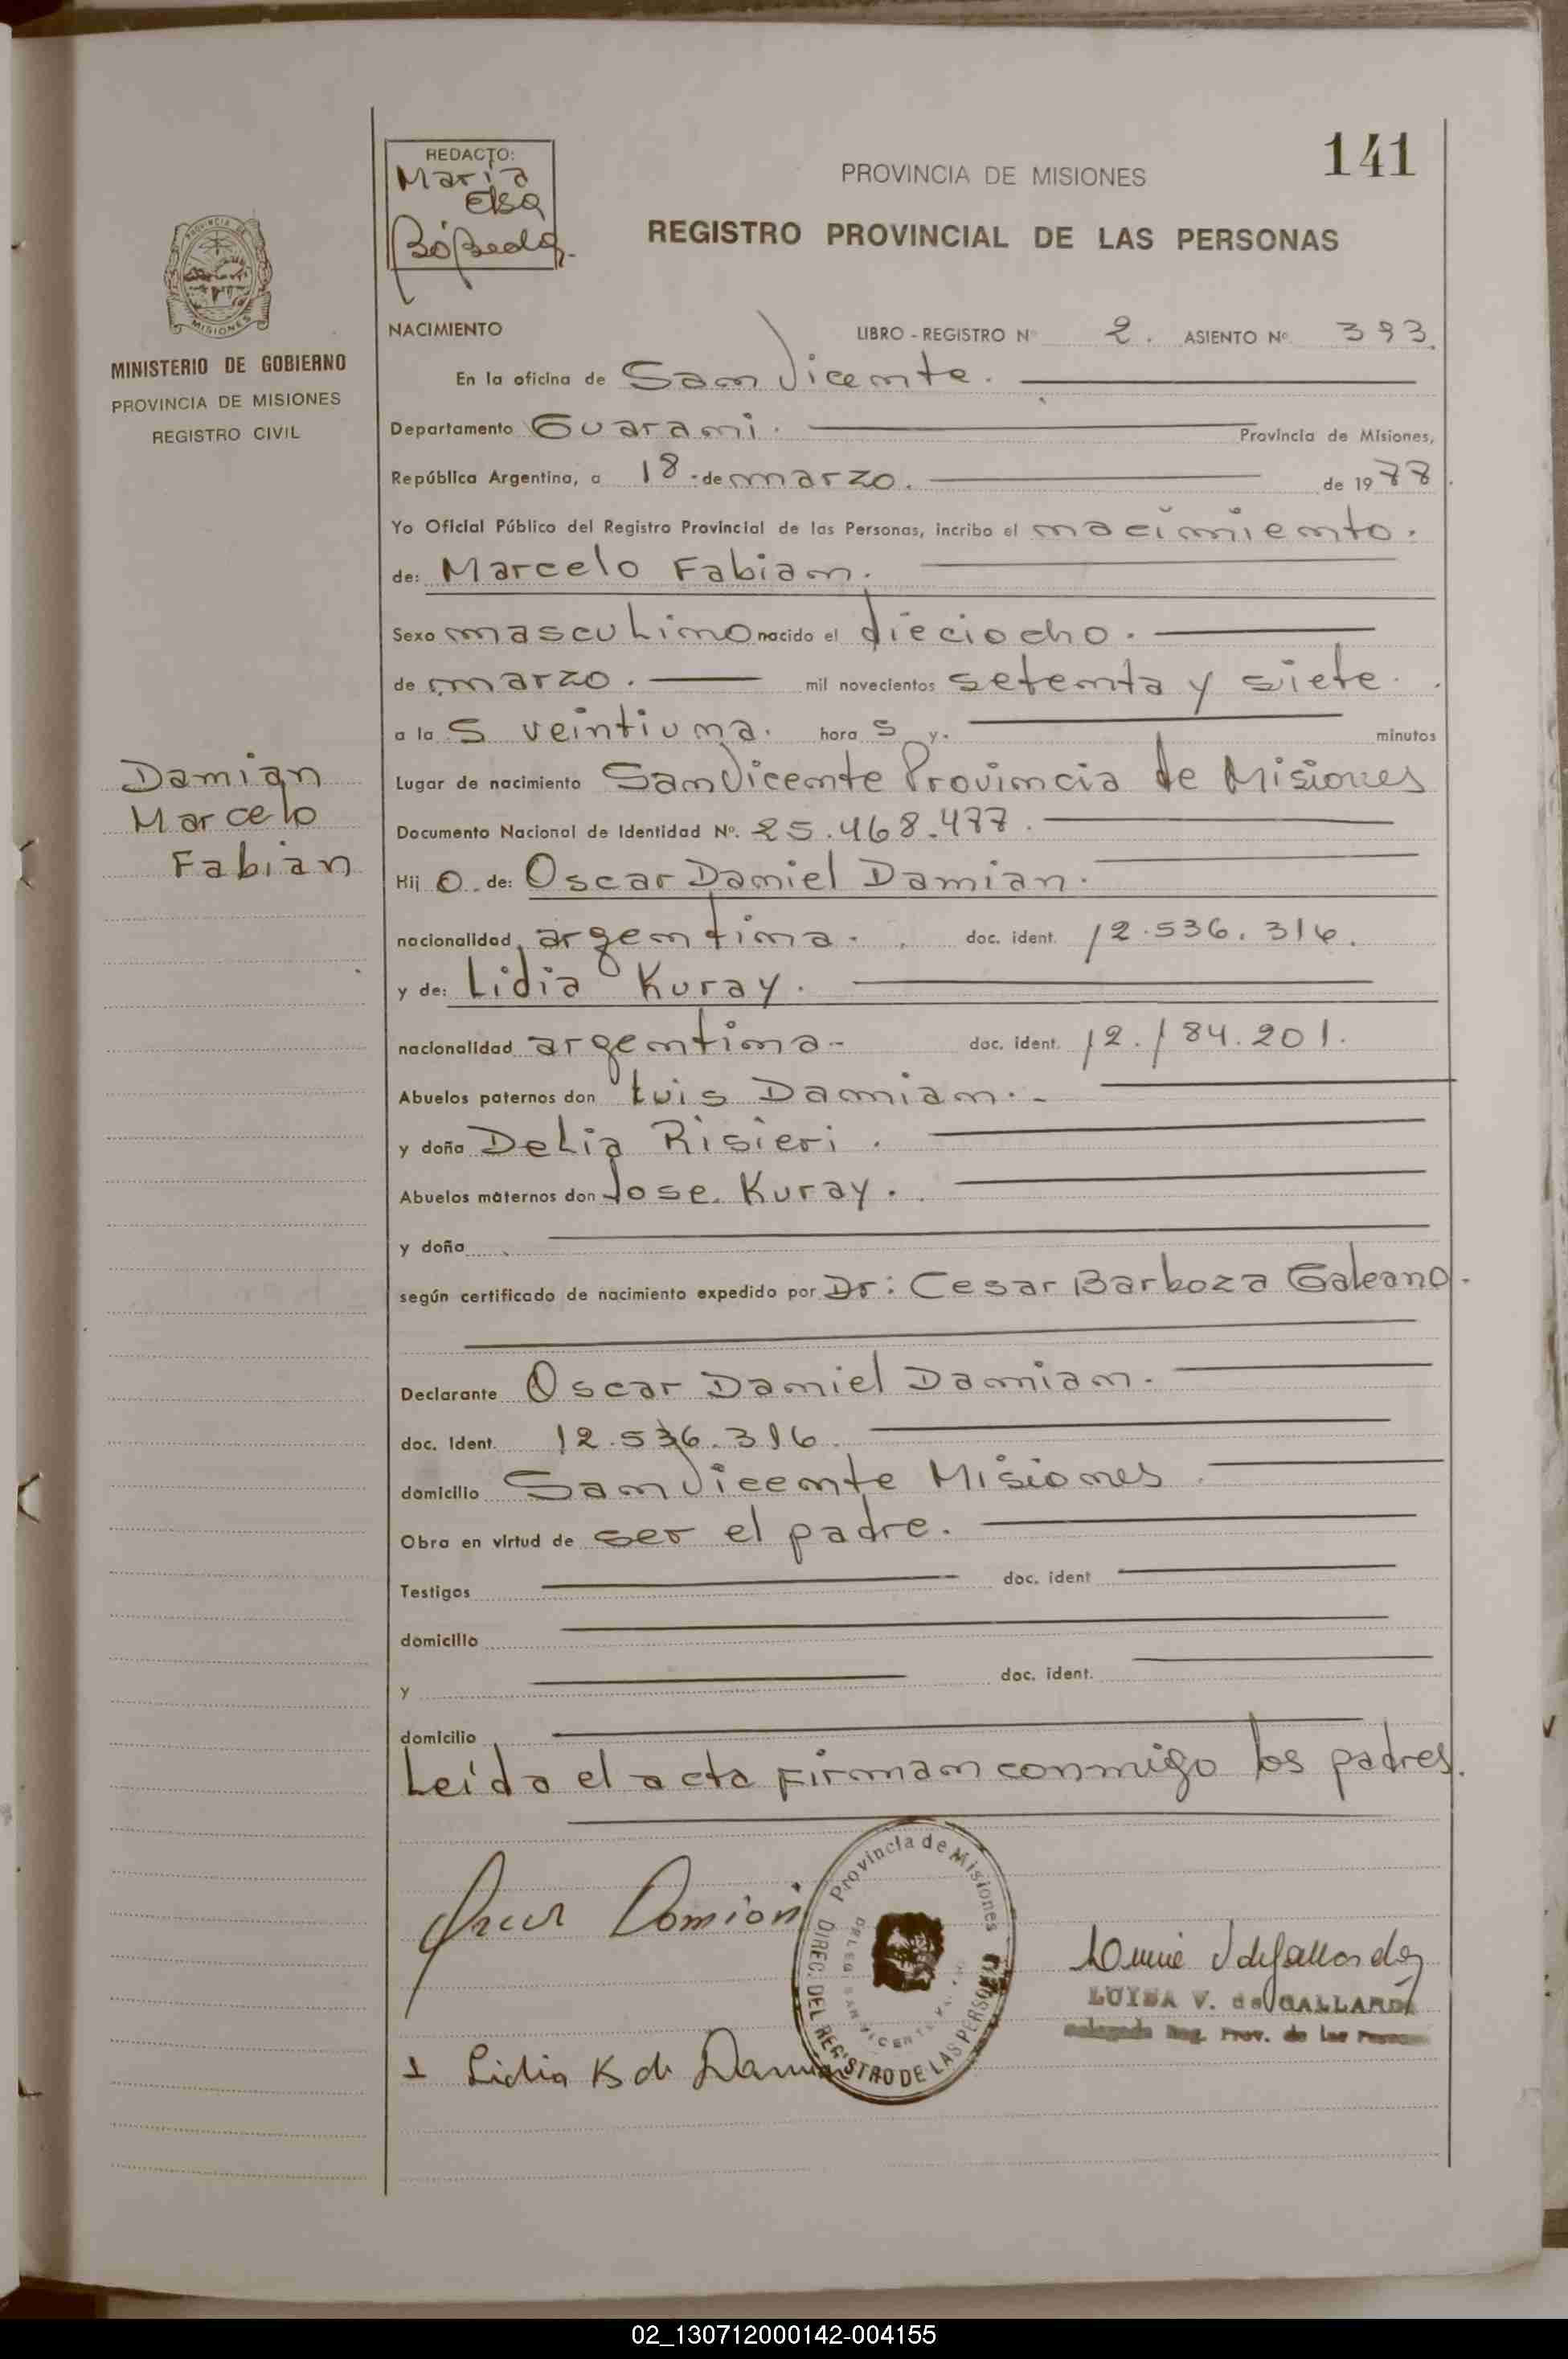 141
REDACTO:
Maria
Elsa
PROVINCIA DE MISIONES
REGISTRO PROVINCIAL DE LAS PERSONAS
PROVINCIA DE
MISIONES
MINISTERIO DE GOBIERNO
PROVINCIA DE MISIONES
REGISTRO CIVIL
NACIMIENTO LIBRO - REGISTRO Nº 2. ASIENTO Nº 393.
En la oficina de San Vicente.
Departamento Guarani. Provincia de Misiones,
República Argentina, a 18 de marzo. de 1977
Yo Oficial Público del Registro Provincial de las Personas, incribo el nacimiento.
de: Marcelo Fabian.
Sexo masculino nacido el dieciocho.
de marzo. mil novecientos setenta y siete.
a la s veintiuna. hora s y. minutos
Damian
Marcelo
Fabian
Lugar de nacimiento San Vicente Provincia de Misiones
Documento Nacional de Identidad Nº. 25.468.477.
Hij o. de: Oscar Daniel Damian.
nacionalidad argentina. doc. ident. 12.536.316.
y de: Lidia Kuray.
nacionalidad argentina- doc. ident. 12.184.201.
Abuelos paternos don Luis Damian.-
y doña Delia Risieri.
Abuelos maternos don Jose Kuray.
y doña
según certificado de nacimiento expedido por Dr: Cesar Barboza Galeano.
Declarante Oscar Daniel Damian.
doc. Ident. 12.536.316.
domicilio San Vicente Misiones
Obra en virtud de ser el padre.
Testigos doc. ident
domicilio
y doc. ident.
domicilio
Leída el acta firman conmigo los padres.
Oscar Damian
Provincia de Misiones
DIREC. DEL REGISTRO DE LAS PERSONAS
DELEG. SAN VICENTE
LUISA V. de GALLARDO
Reg. Prov. de las
Lidia K de Damian
02_130712000142-004155